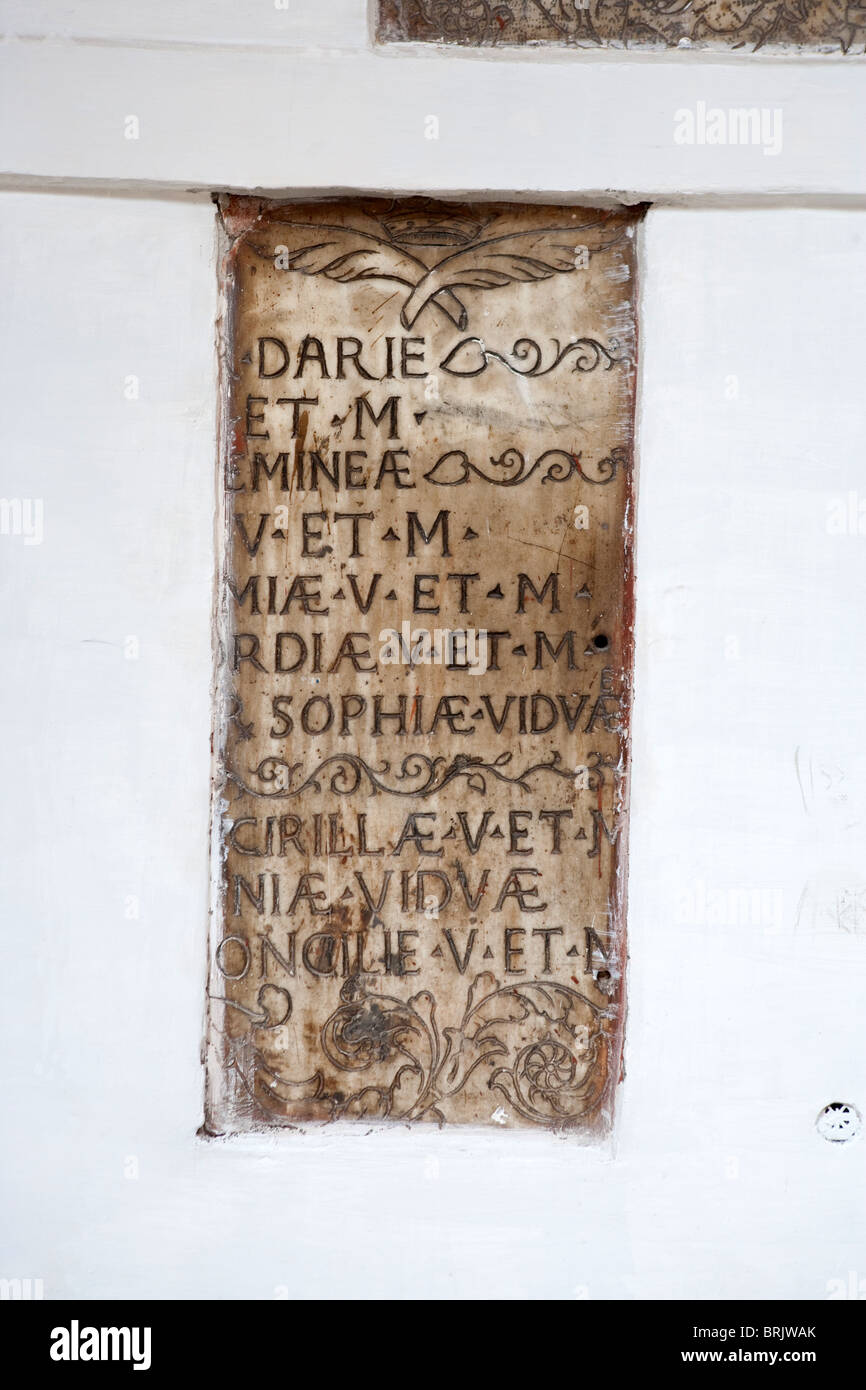 · DARIE
ET · M ·
EMINEÆ
V · ET · M ·
MIÆ · V · ET · M ·
RDIÆ · V · ET · M ·
& SOPHIÆ · VIDVÆ E
CIRILLÆ · V · ET · M
NIÆ · VIDVÆ
ONCILIE · V · ET · M
alamy
Image ID: BRJWAK
www.alamy.com